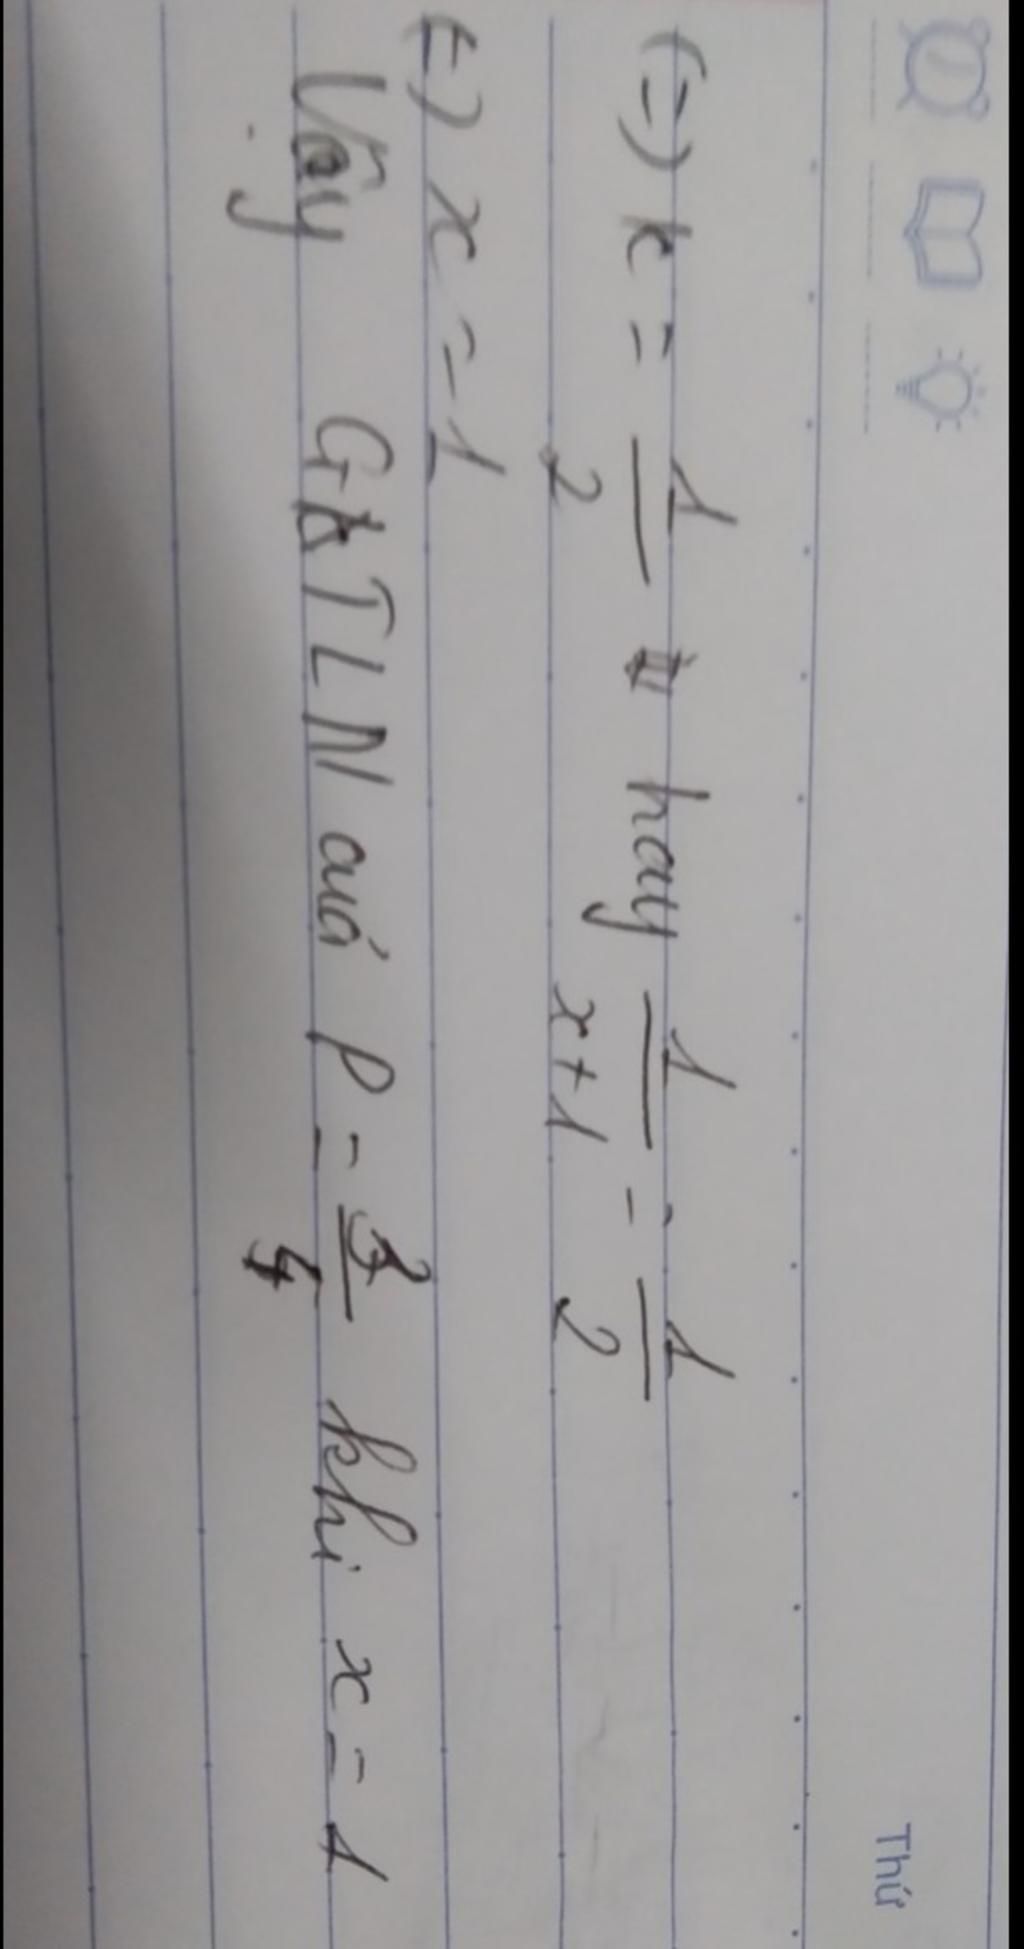 Thứ
(=) k = 1/2 hay 1/(x+1) = 1/2
(=) x = 1
Vậy GTLN cuả P = 3/4 khi x = 1